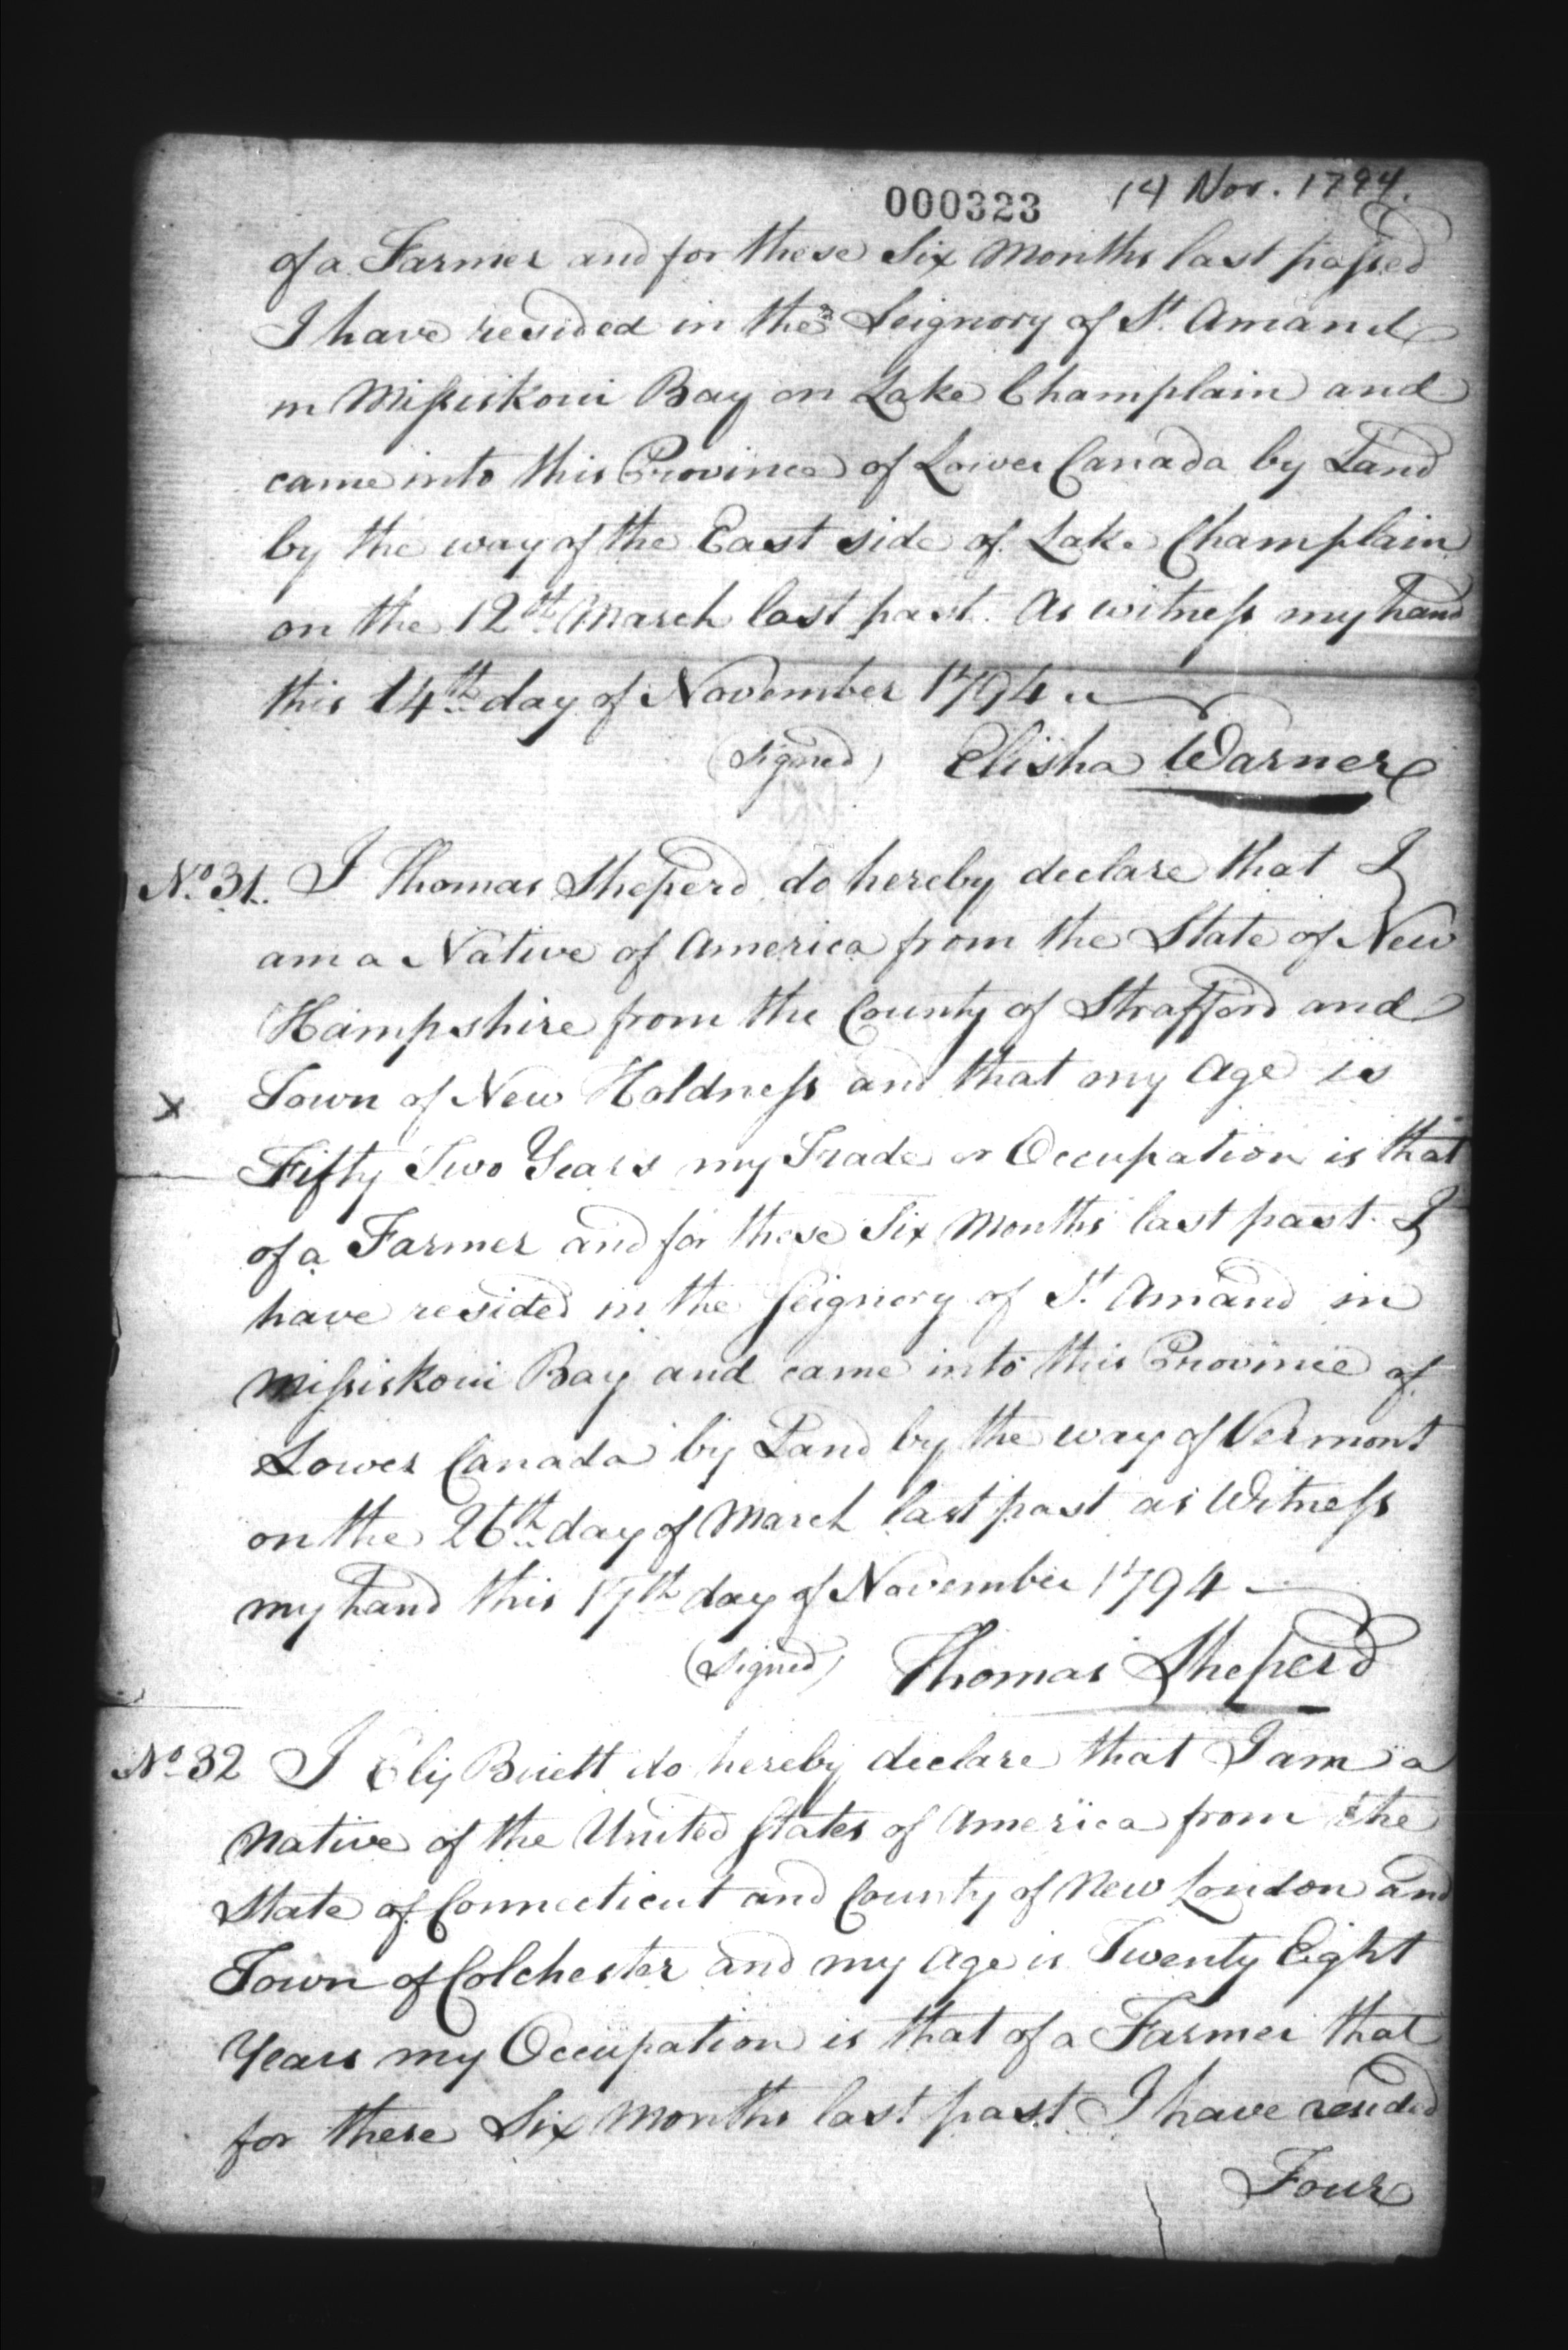 000323 14 Nov. 1794.
of a Farmer and for these Six Months last passed
I have resided in the Seignory of St. Amand
in Missiskoui Bay on Lake Champlain and
came into this Province of Lower Canada by Land
by the way of the East side of Lake Champlain
on the 12th March last past. As witness my hand
this 14th day of November 1794
(Signed) Elisha Warner
No. 31. I Thomas Sheperd do hereby declare that I
am a Native of America from the State of New
Hampshire from the County of Strafford and
x Town of New Holdness and that my Age is
Fifty Two Years my Trade or Occupation is that
of a Farmer and for these Six Months last past I
have resided in the Seignory of St. Amand in
Missiskoui Bay and came into this Province of
Lower Canada by Land by the way of Vermont
on the 26th day of March last past as Witness
my hand this 17th day of November 1794
(Signed) Thomas Sheperd
No. 32 I Ely do hereby declare that I am a
Native of the United States of America from the
State of Connecticut and County of New London and
Town of Colchester and my Age is Twenty Eight
Years my Occupation is that of a Farmer that
for these Six Months last past I have resided
Four